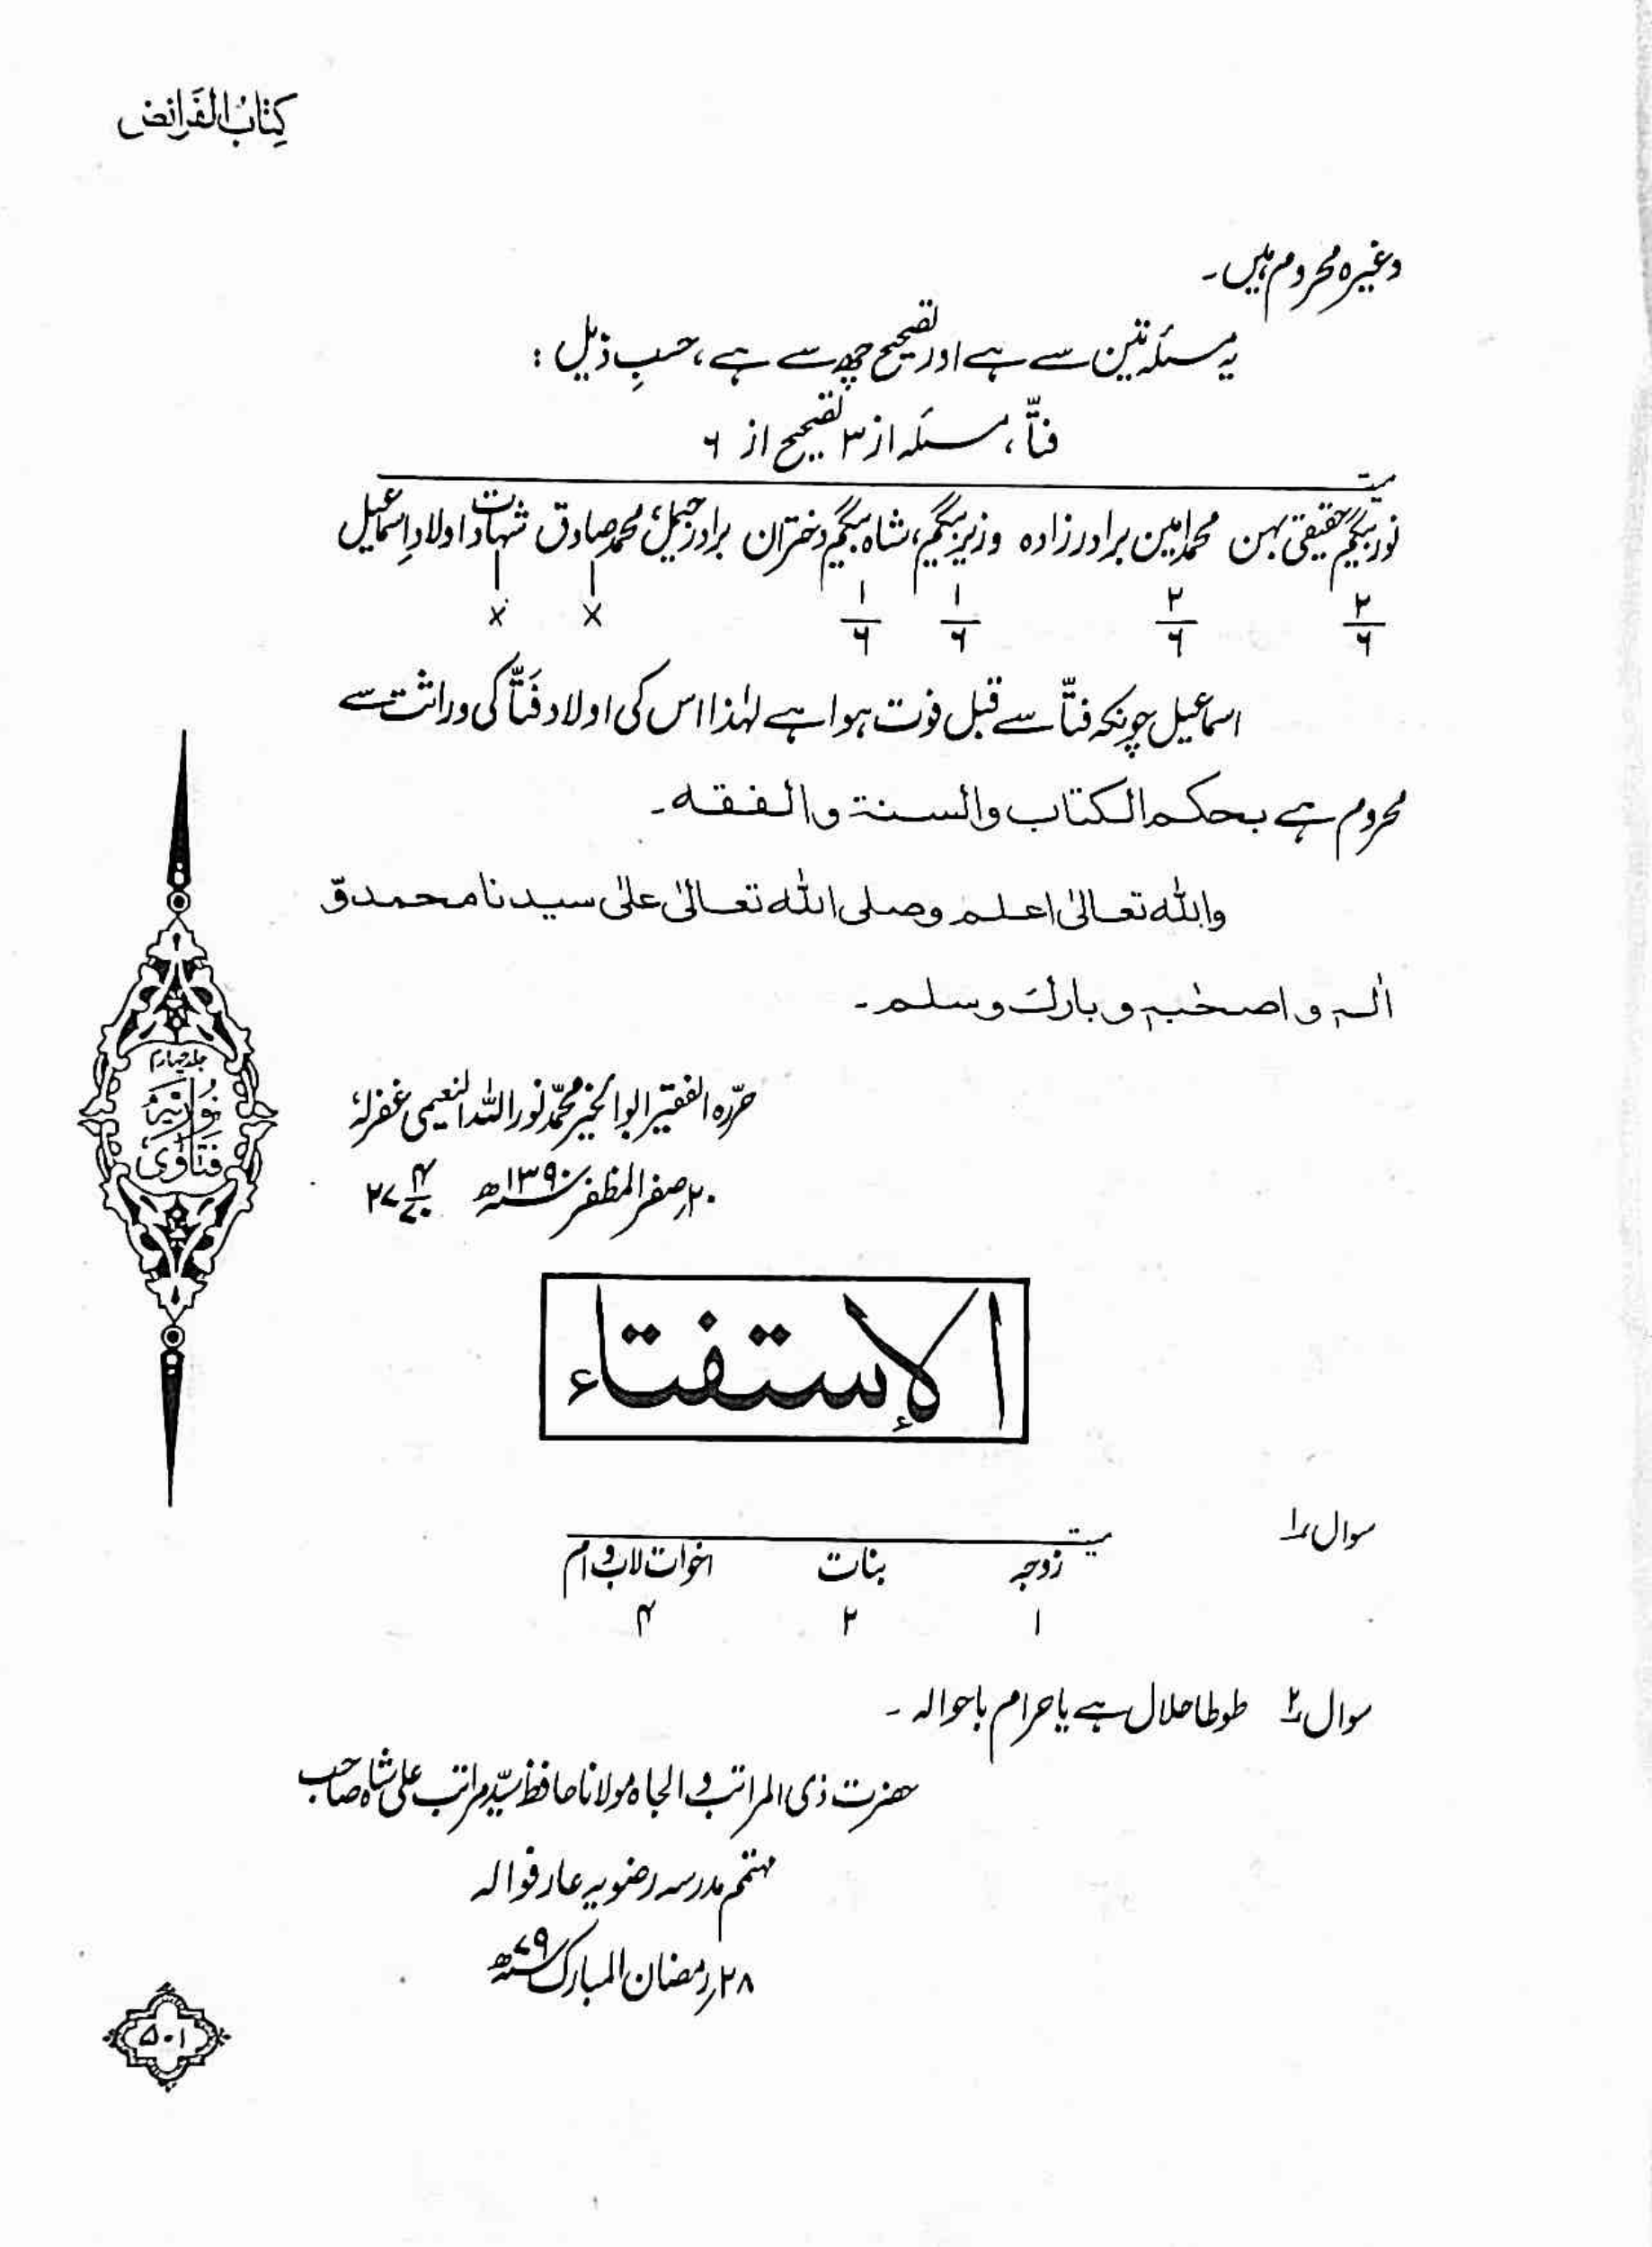 کتابُ الفَرائض
وغیرہ محروم ہیں۔
یہ مسئلہ تین سے ہے اور تصحیح چھ سے ہے، حسبِ ذیل :
فتّا، مسئلہ از ۳ تصحیح از ۶
میت
نور بیگم حقیقی بہن محمد امین برادر زادہ وزیر بیگم، شاہ بیگم دختران برادر جمیل، محمد صادق شہادت اولادِ اسماعیل
۲/۶ ۲/۶ ۱/۶ ۱/۶ × ×
اسماعیل چونکہ فتّا سے قبل فوت ہوا ہے لہٰذا اس کی اولاد فَتّا کی وراثت سے
محروم ہے بحکم الکتاب والسنة والفقه۔
والله تعالیٰ اعلم وصلی الله تعالیٰ علیٰ سیدنا محمد وّ
اٰلہٖ و اصحٰبہٖ و بارك وسلم۔
حرّرہ الفقیر ابو الخیر محمّد نور اللہ النعیمی غفرلہٗ
۲۰ صفر المظفر ۱۳۹۰ھ ۲۷/۴/۷۰
جلد چہارم
نُورِیَّہ
فَتَاوٰی
الإستفتاء
سوال ۱
میت
زوجہ بنات اخوات لاب و ام
۱ ۲ ۴
سوال ۲ طوطا حلال ہے یا حرام باحوالہ۔
حضرت ذی المراتب و الجاہ مولانا حافظ سیّد مراتب علی شاہ صاحب
مہتمم مدرسہ رضویہ عارفوالہ
۲۸ رمضان المبارک ۷۹ھ
۵۰۱